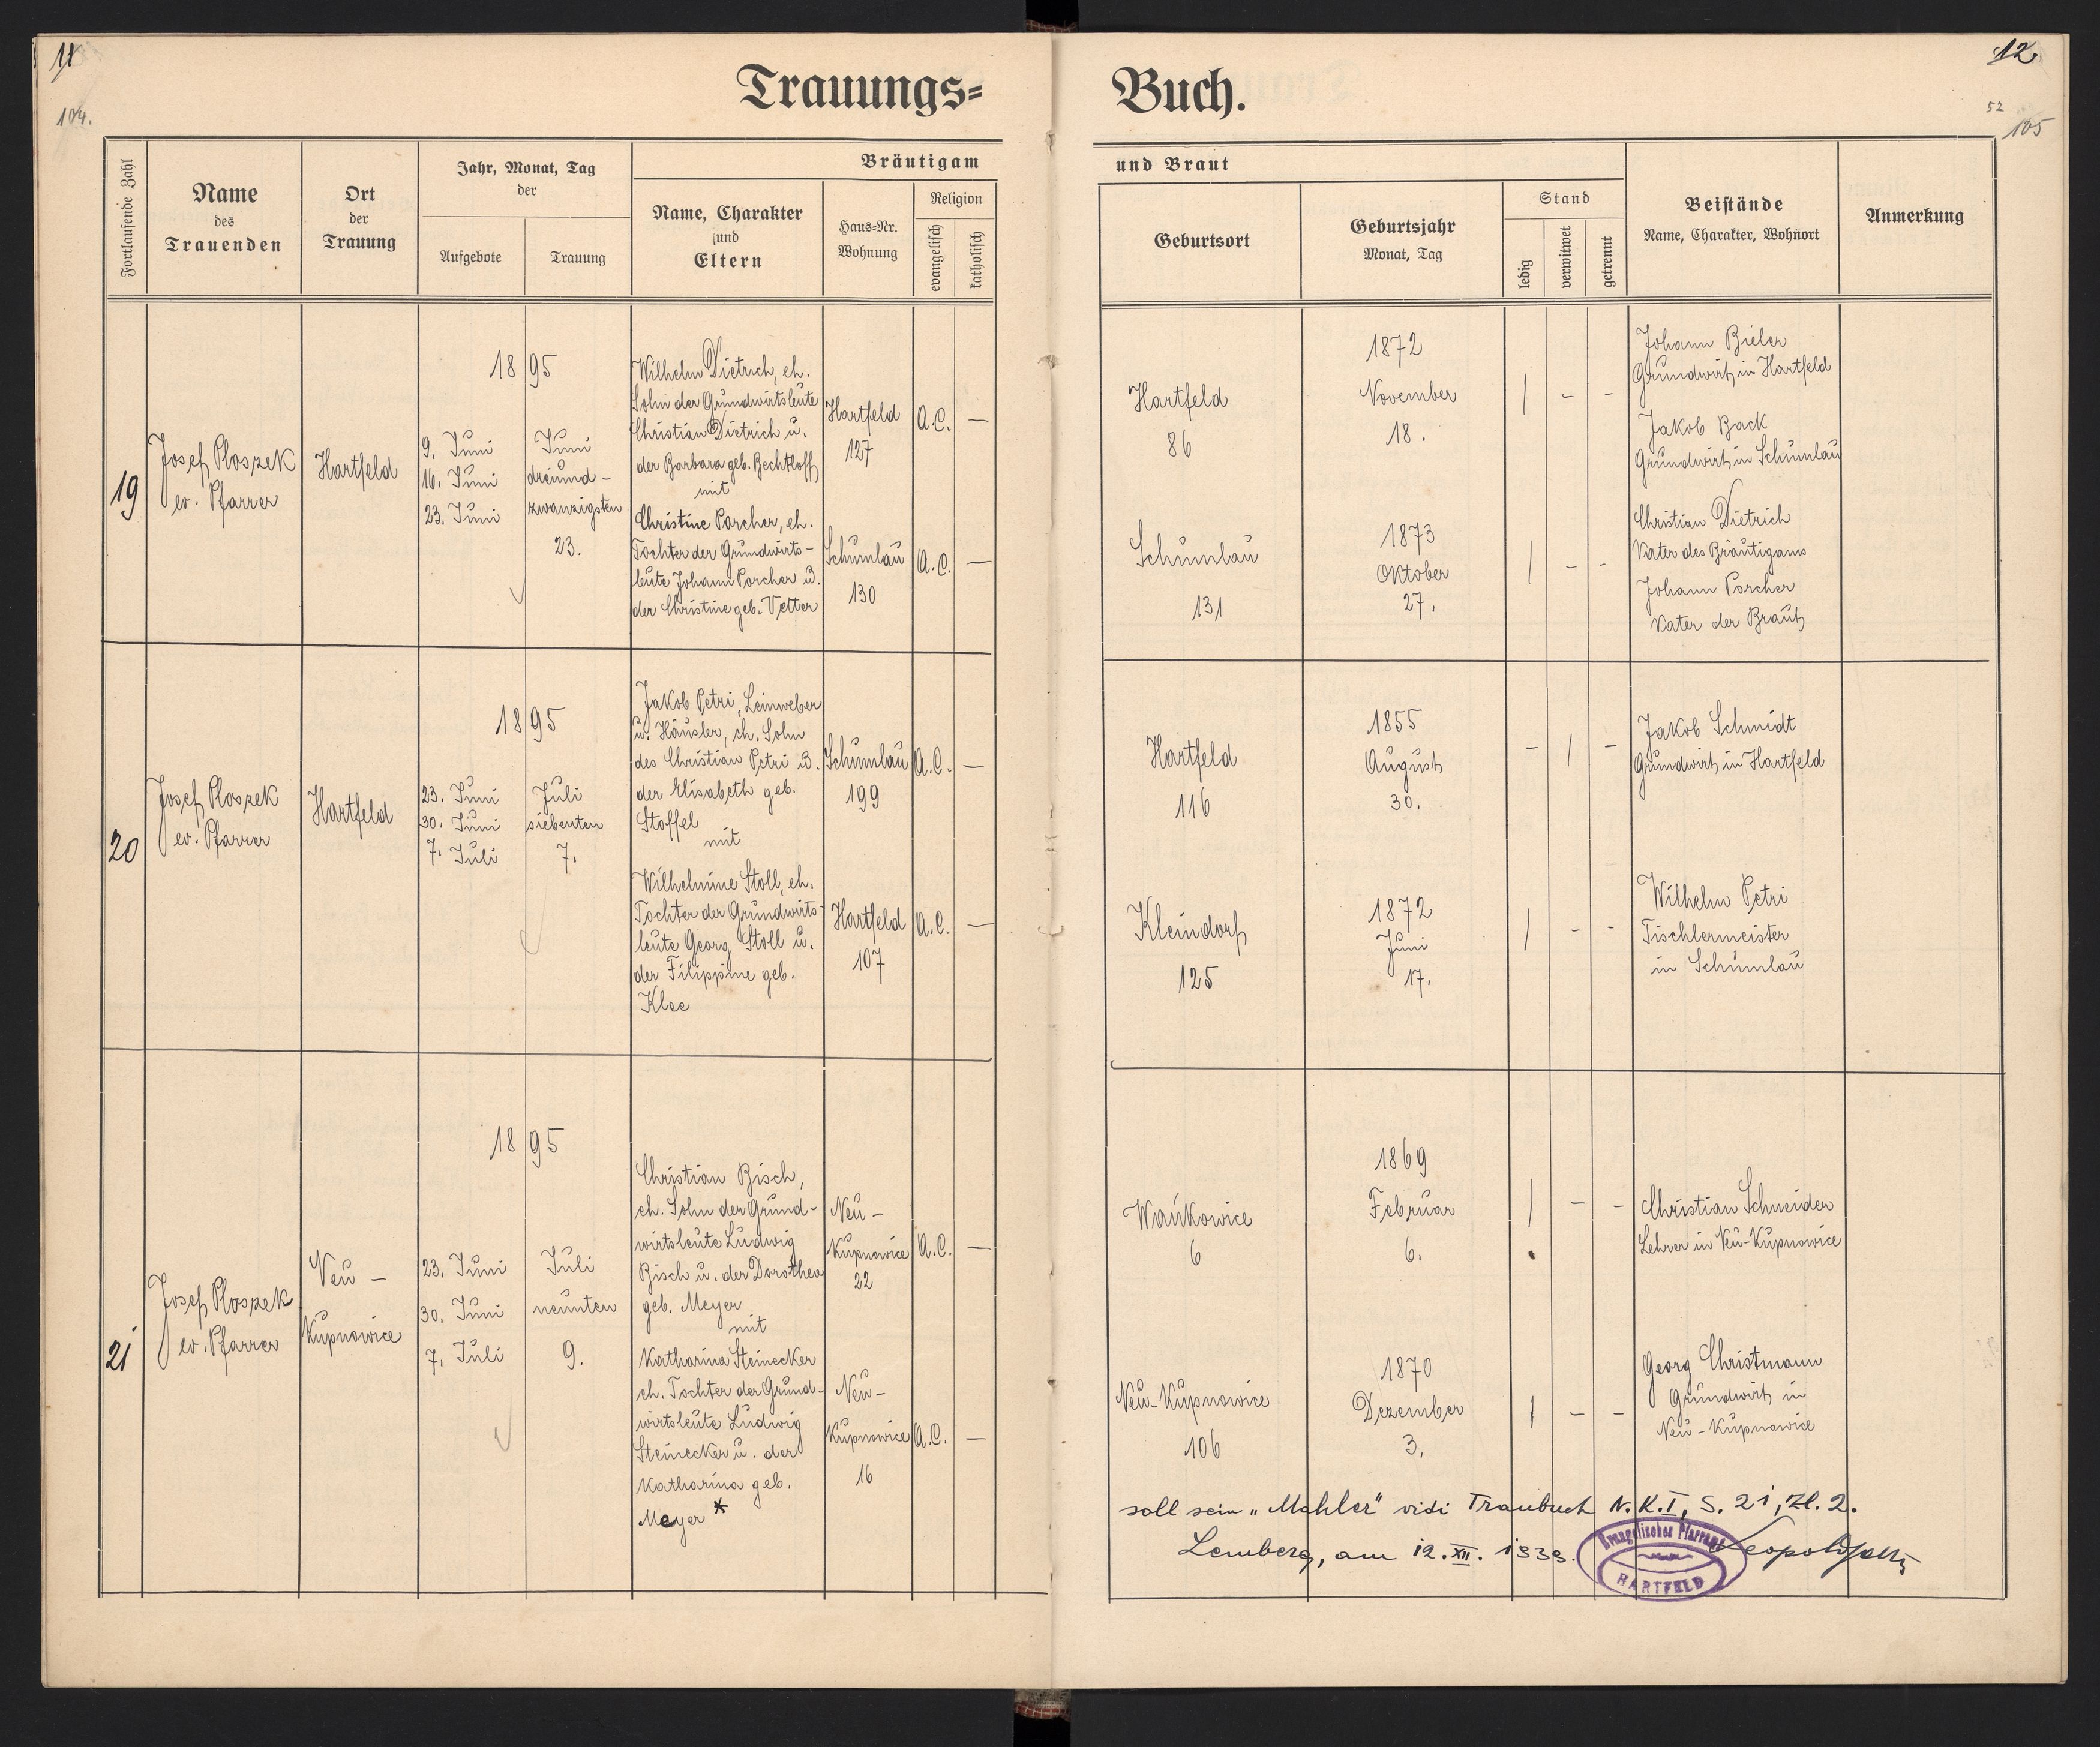 11
104.
Trauungs=
Fortlaufende Zahl
Name
des
Trauenden
Ort
der
Trauung
Jahr, Monat, Tag
der
Aufgebote
Trauung
Bräutigam
Name, Charakter
und
Eltern
Haus=Nr.
Wohnung
Religion
evangelisch
katholisch
19
Josef Ploszek
ev. Pfarrer
Hartfeld
1895
9. Juni
16. Juni
23. Juni
Juni
dreiund-
zwanzigsten
23.
Wilhelm Dietrich, eh.
Sohn der Grundwirtsleute
Christian Dietrich u.
der Barbara geb. Bechtloff
mit
Christine Porcher, eh.
Tochter der Grundwirts-
leute Johann Porcher u.
der Christine geb. Vetter
Hartfeld
127
A.C. —
Schumlau
130
A.C. —
20
Josef Ploszek
ev. Pfarrer
Hartfeld
1895
23. Juni
30. Juni
7. Juli
Juli
siebenten
7.
Jakob Petri, Leinweber
u. Häusler, eh. Sohn
des Christian Petri u.
der Elisabeth geb.
Stoffel
mit
Wilhelmine Stoll, eh.
Tochter der Grundwirts-
leute Georg Stoll u.
der Filippine geb.
Klee
Schumlau
199
A.C. —
Hartfeld
107
A.C. —
21
Josef Ploszek
ev. Pfarrer
Neu -
Kupnowice
1895
23. Juni
30. Juni
7. Juli
Juli
neunten
9.
Christian Bisch,
eh. Sohn der Grund-
wirtsleute Ludwig
Bisch u. der Dorothea
geb. Meyer
mit
Katharina Steinecker
eh. Tochter der Grund-
wirtsleute Ludwig
Steinecker u. der
Katharina geb.
Meyer *
Neu -
Kupnowice
22
A.C. —
Neu -
Kupnowice
16
A.C. —
12
52
105
Buch.
und Braut
Geburtsort
Geburtsjahr
Monat, Tag
Stand
ledig
verwitwet
getrennt
Beistände
Name, Charakter, Wohnort
Anmerkung
Hartfeld
86
1872
November
18.
/ - -
Johann Bieler
Grundwirt in Hartfeld
Jakob Back
Grundwirt in Schumlau
Schumlau
131
1873
Oktober
27.
/ - -
Christian Dietrich
Vater des Bräutigams
Johann Porcher
Vater der Braut
Hartfeld
116
1855
August
30.
- / -
Jakob Schmidt
Grundwirt in Hartfeld
Kleindorf
125
1872
Juni
17.
/ - -
Wilhelm Petri
Tischlermeister
in Schumlau
Wańkowice
6
1869
Februar
6.
/ - -
Christian Schneider
Lehrer in Neu-Kupnowice
Neu-Kupnowice
106
1870
Dezember
3.
/ - -
Georg Christmann
Grundwirt in
Neu-Kupnowice
soll sein „Mahler" vidi Traubuch N.K.I, S. 21, Zl. 2.
Lemberg, am 12. XII. 1939.
Evangelisches Pfarramt
HARTFELD